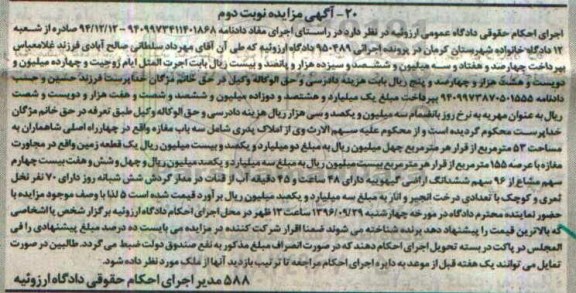 ۲۰- آگهی مزایده نوبت دوم
اجرای احکام حقوقی دادگاه عمومی ارزوئیه در نظر دارد در راستای اجرای مفاد دادنامه ۹۴۰۹۹۷۳۴۱۱۴۰۱۸۶۸ - ۹۴/۱۲/۱۲ صادره از شعبه
۱۲ دادگاه خانواده شهرستان کرمان در پرونده اجرائی ۹۵۰۴۸۹ دادگاه ارزوئیه که طی آن آقای مهرداد سلطانی صالح آبادی فرزند غلامعباس
بپرداخت چهارصد و هفتاد و سه میلیون و ششصد و سیزده هزار و پانصد و بیست ریال بابت اجرت المثل ایام زوجیت و چهارده میلیون و
دویست و هشت هزار و چهارصد و پنج ریال بابت هزینه دادرسی و حق الوکاله وکیل در حق خانم مژگان خداپرست فرزند حسین و حسب
دادنامه ۹۴۰۹۹۷۳۸۷۰۵۰۱۵۵۵ بپرداخت مبلغ یک میلیارد و هشتصد و دوازده میلیون و ششصد و شصت و هفت هزار و دویست و شصت
ریال به عنوان مهریه به نرخ روز بانضمام سه میلیون و یکصد و سی هزار ریال هزینه دادرسی و حق الوکاله وکیل طبق تعرفه در حق خانم مژگان
خداپرست محکوم گردیده است و از محکوم علیه سهم الارث وی از املاک پدری شامل سه باب مغازه واقع در چهارراه اصلی شاهماران به
مساحت ۵۳ مترمربع از قرار هر مترمربع چهل میلیون ریال به مبلغ دو میلیارد و یکصد و بیست میلیون ریال یک قطعه زمین واقع در مجاورت
مغازه با عرصه ۱۵۵ مترمربع از قرار هر مترمربع بیست میلیون ریال به مبلغ سه میلیارد و یکصد میلیون ریال و چهل وشش و هفت بیست چهارم
سهم مشاع از ۹۶ سهم ششدانگ اراضی گیهوییه دارای ۴۸ ساعت و ۴۵ دقیقه آب از قنات در مدار گردش شش شبانه روز دارای ۷۰ نفر نخل
ثمری و کوچک با تعدادی درخت انجیر و انار به مبلغ سه میلیارد و یکصد میلیون ریال برآورد قیمت شده است لذا با وصف موجود مزایده با
حضور نماینده محترم دادگاه در مورخه چهارشنبه ۱۳۹۶/۰۹/۲۹ ساعت ۱۲ ظهر در محل اجرای احکام دادگاه ارزوئیه برگزار شخص یا اشخاصی
که بالاترین قیمت را پیشنهاد دهد برنده شناخته می شوند ضمنا اقرار شرکت کننده در مزایده می بایست ده درصد مبلغ پیشنهادی را فی
المجلس در پاکت در بسته تحویل اجرای احکام دهند که در صورت انصراف مبلغ مذکور به نفع صندوق دولت ضبط می گردد. طالبین در صورت
تمایل می توانند یک هفته قبل از موعد به دایره اجرای احکام مراجعه تا ترتیب بازدید آنها از ملک مورد نظر داده شود.
۵۸۸ مدیر اجرای احکام حقوقی دادگاه ارزوئیه